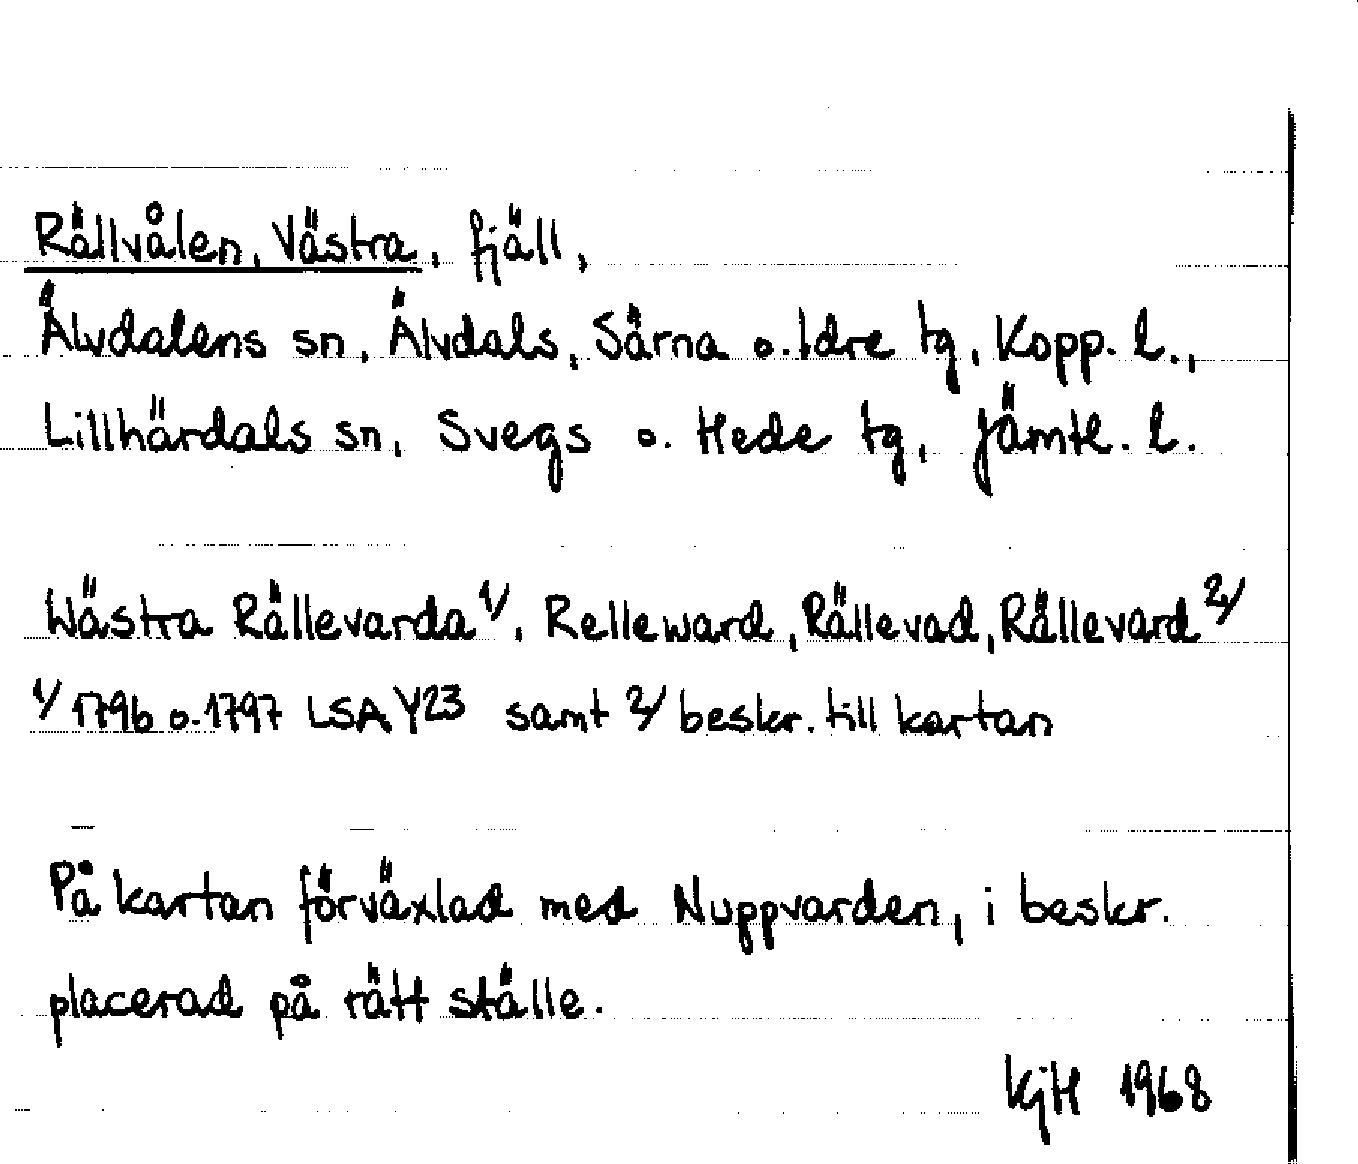 Rällvålen, Västra, fjäll,
Älvdalens sn, Älvdals, Särna o. Idre tg, Kopp. l.,
Lillhärdals sn, Svegs o. Hede tg, Jämtl. l.
Wästra Rällevarda 1/, Relleward, Rällevad, Rällevard 2/
1/ 1796 o. 1797 LSA Y23 samt 2/ beskr. till kartan
På kartan förväxlad med Nuppvarden, i beskr.
placerad på rätt ställe.
KjH 1968